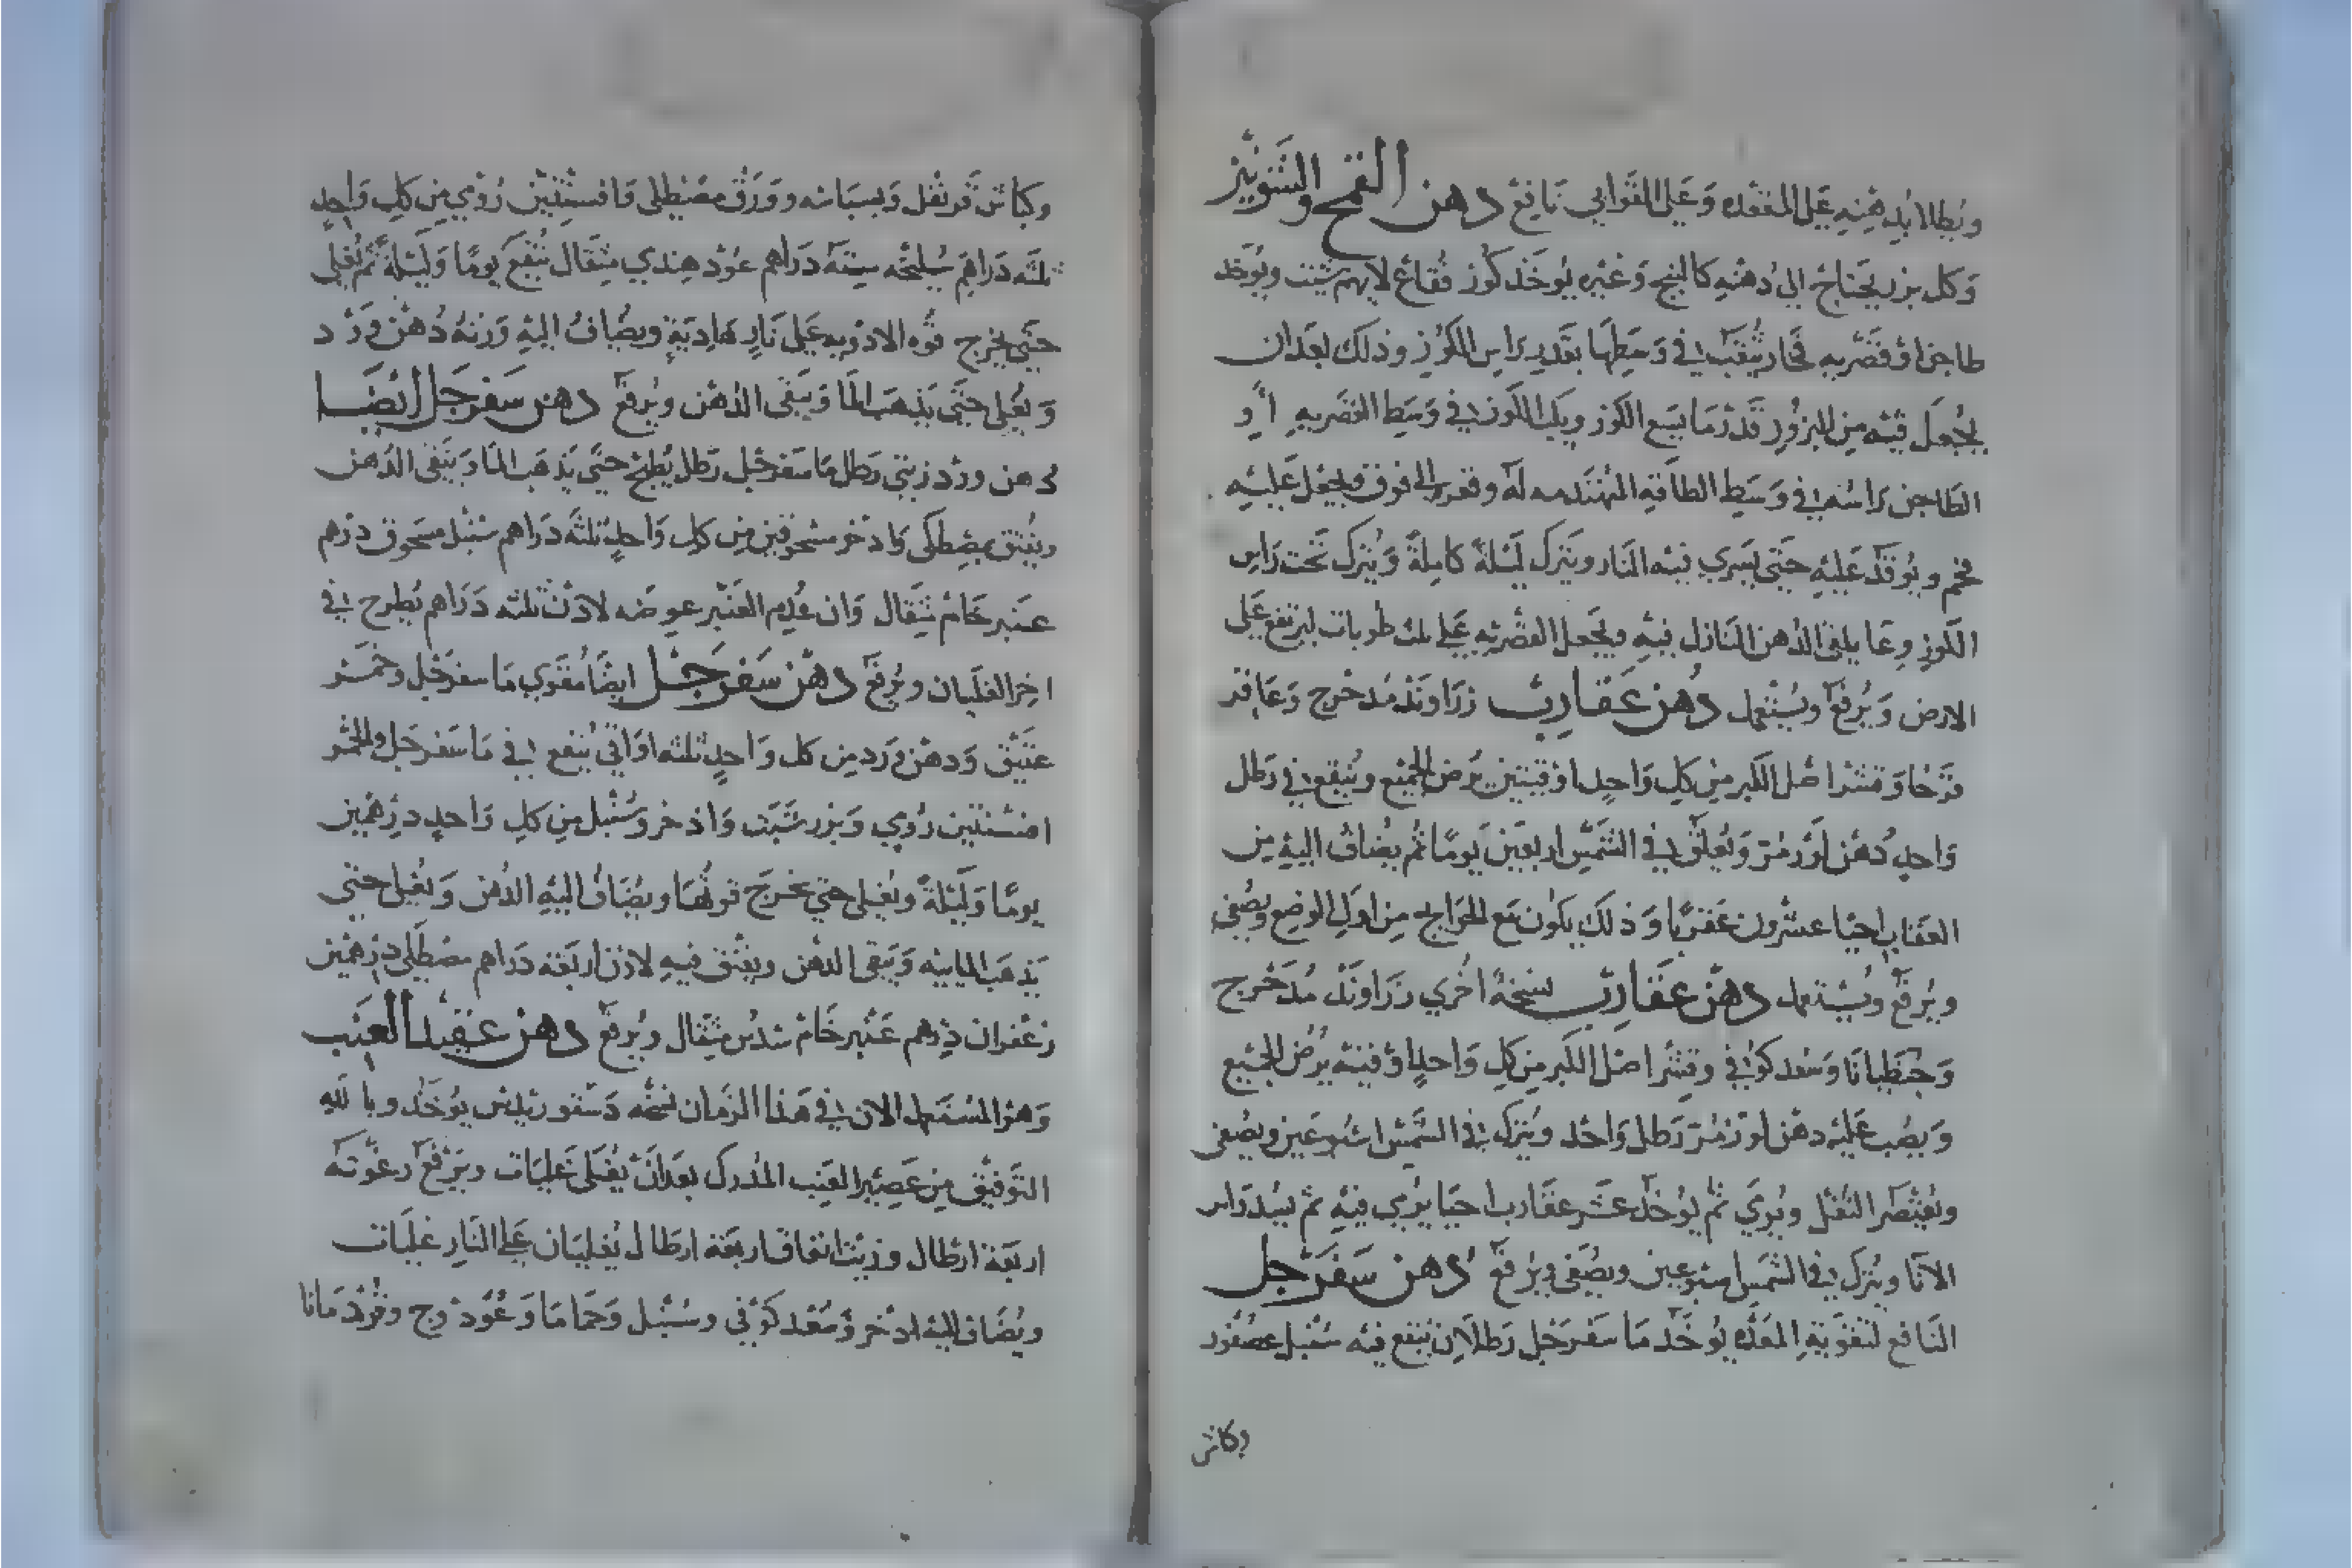 ويطلا بدهنه على المقعده وعلى القوابي نافع دهن القمح والشونيز
وكل بزر يحتاج الى دهنه كالبنج وغيره يوخذ كوز فقاع لايهم شيت ويوخذ
طاجن او قصريه فخار يثقب في وسطها بقدر راس الكوز وذلك بعد ان
يجعل فيه من البزور قدر ما يسع الكوز ويكب الكوز في وسط القصريه او
الطاجن راسه في وسط الطاقه المهندمه له وقعره الى فوق ويجعل عليه
فحم ويوقد عليه حتى يسري فيه النار ويترك ليلة كاملة ويترك تحت راس
الكوز وعا يلقى الدهن النازل فيه ويجعل القصريه على ثلث طوبات ليرتفع على
الارض ويرفع ويستعمل دهن عقارب زراوند مدحرج وعاقر
قرحا وقشر اصل الكبر من كل واحد اوقيتين يرض الجميع وينقع في رطل
واحد دهن لوز مر ويعلق في الشمس اربعين يوما ثم يضاف اليه من
العقارب احيا عشرون عقربا وذلك يكون مع الحوايج من اول الوضع ويصفى
ويرفع ويستعمل دهن عقارب نسخة اخري زراوند مدحرج
وجنطيانا وسعد كوفي وقشر اصل الكبر من كل واحد اوقيه يرض الجميع
ويصب عليه دهن لوز مر رطل واحد ويترك في الشمس اسبوعين ويصفى
ويعتصر الثفل ويرمي ثم يوخذ عشر عقارب احيا يرمي فيه ثم يسد راس
الانا ويترك في الشمس اسبوعين ويصفى ويرفع دهن سفرجل
النافع لتقوية المعده يوخذ ما سفرجل رطلان ينقع فيه سنبل عصفور
وكاش
وكباش قرنفل وبسباسه وورق مصطكى وافسنتين رومي من كل واحد
ثلثه دراهم سليخه سته دراهم عود هندي مثقال ينقع يوما وليلة ثم يغلى
حتى يخرج قوه الادويه على نار هادية ويضاف اليه وزنه دهن ورد
ويغلى حتى يذهب الما ويبقى الدهن ويرفع دهن سفرجل ايضا
دهن ورد زيتي رطل ما سفرجل رطل يطبخ حتى يذهب الما ويبقى الدهن
ويفتق بمصطكى واذخر مسحوقين من كل واحد ثلثه دراهم سنبل مسحوق درهم
عنبر خام مثقال وان عدم العنبر عوضه لادن ثلثه دراهم يطرح في
اخر الغليان ويرفع دهن سفرجل ايضا مقوي ما سفرجل وخمر
عتيق ودهن ورد من كل واحد ثلثه اواقي ينقع في ما سفرجل والخمر
افسنتين رومي وبزر شبت واذخر وسنبل من كل واحد درهمين
يوما وليلة ويغلى حتي تخرج قوتها ويضاف اليه الدهن ويغلى حتى
يذهب الماييه ويبقى الدهن ويفتق فيه لادن اربعه دراهم مصطكى درهمين
زعفران درهم عنبر خام سدس مثقال ويرفع دهن عقيد العنب
وهو المستعمل الان في هذا الزمان نسخه دستور يوخذ وبالله
التوفيق من عصير العنب المدرك بعد ان يغلى غليات ويرفع رغوته
اربعة ارطال وزيت انفاق اربعه ارطال يغليان على النار غليات
ويضاف اليه اذخر وسعد كوفي وسنبل وحماما وعود وج وقردمانا